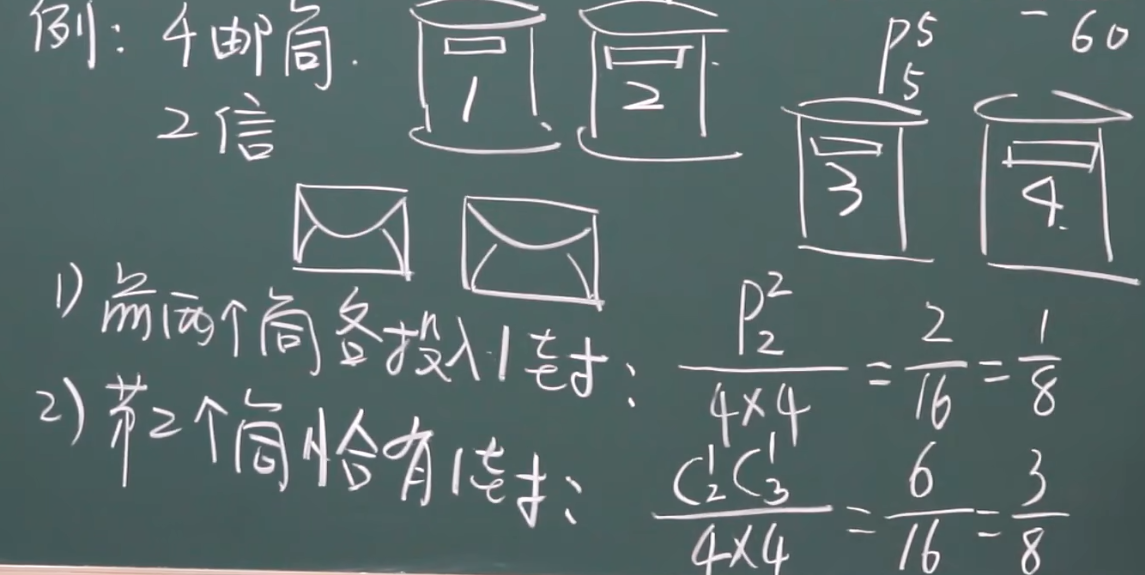 例：4邮筒.
2信
1
2
P⁵₅
- 60
3
4.
1) 前两个筒各投入1封： P²₂/4×4 = 2/16 = 1/8
2) 第2个筒恰有1封： C¹₂C¹₃/4×4 = 6/16 = 3/8